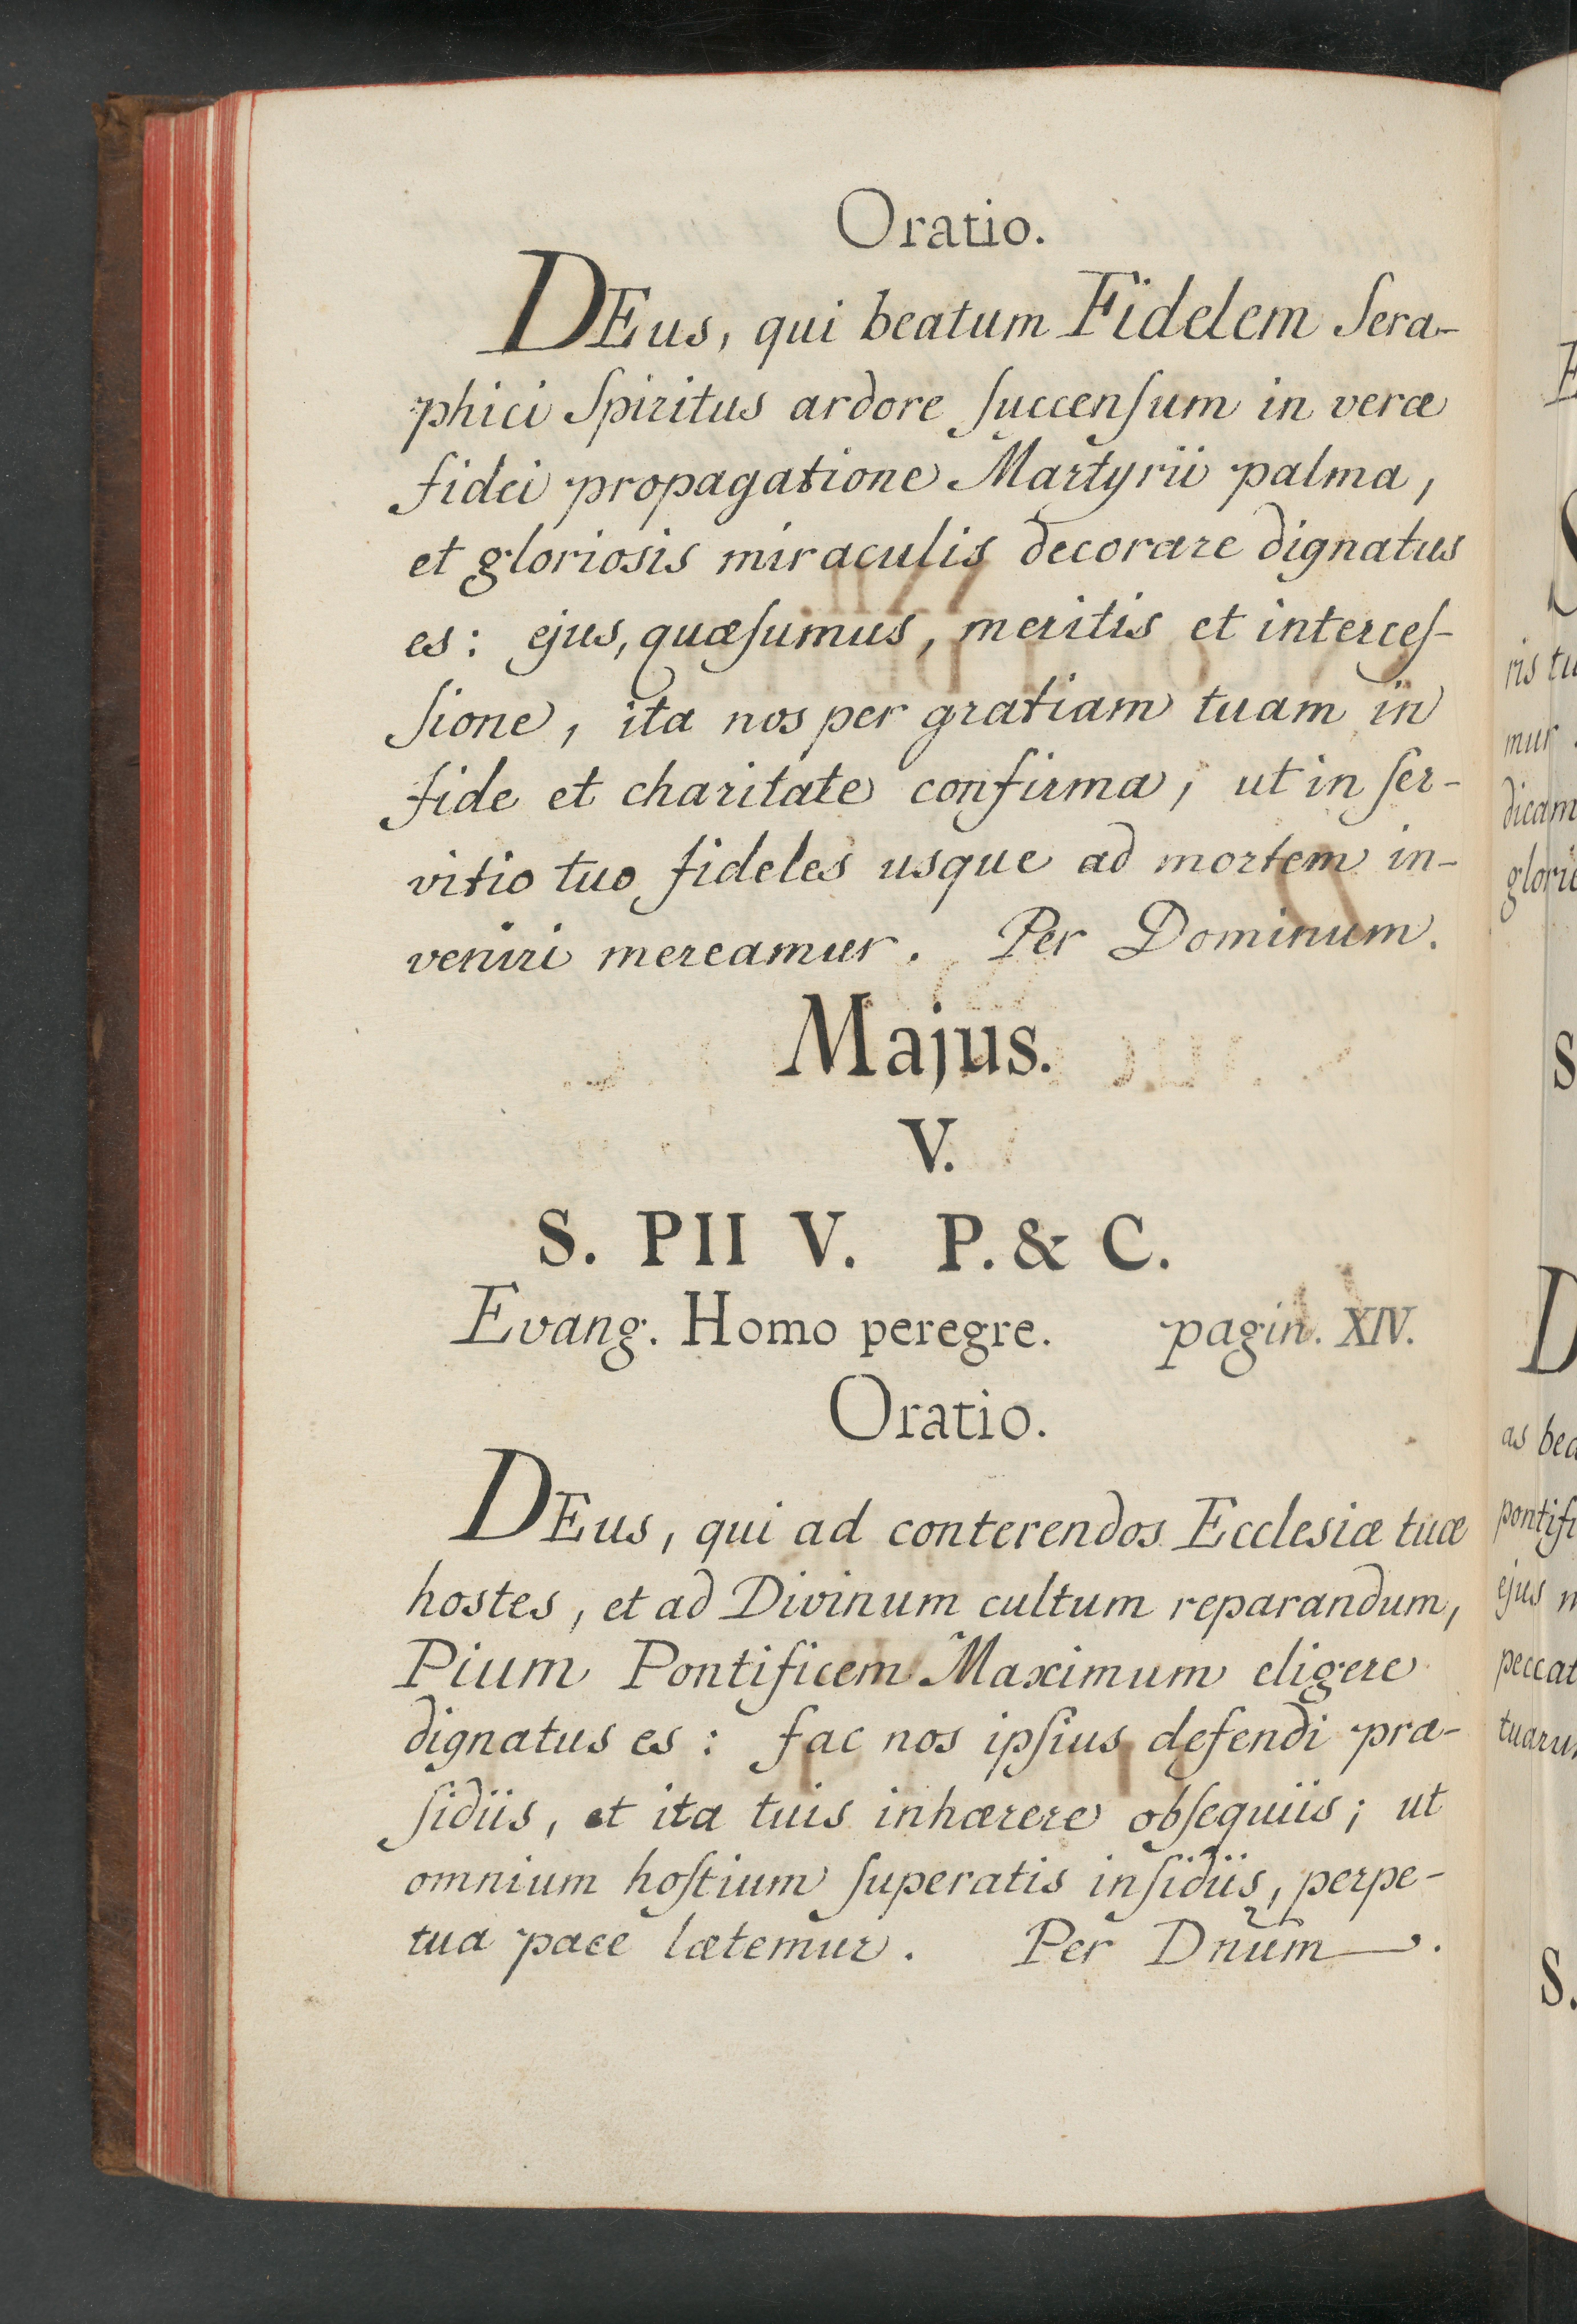 Oratio.
DEus, qui beatum Fidelem Sera-
phici Spiritus ardore ſuccenſum in veræ
fidei propagatione Martyrii palma,
et gloriosis miraculis decorare dignatus
es: ejus, quæſumus, meritis et interceſ-
ſione, ita nos per gratiam tuam in
fide et charitate confirma, ut in ſer-
vitio tuo fideles usque ad mortem in-
veniri mereamur. Per Dominum.
Majus.
V.
S. PII V. P. & C.
Evang. Homo peregre. pagin. XIV.
Oratio.
DEus, qui ad conterendos Ecclesiæ tuæ
hostes, et ad Divinum cultum reparandum,
Pium Pontificem Maximum eligere
dignatus es: fac nos ipſius defendi præ-
ſidiis, et ita tuis inhærere obſequiis; ut
omnium hoſtium ſuperatis inſidiis, perpe-
tua pace lætemur. Per Dnūm.
ris tu
mur
dicam
S
D
as bea
pontifi
ejus
peccat
tuarum
S.